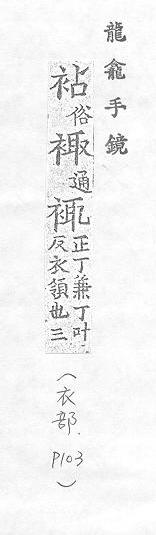 龍龕手鏡
袩俗
通
正丁兼丁叶
反衣領也三
（衣部. P103）